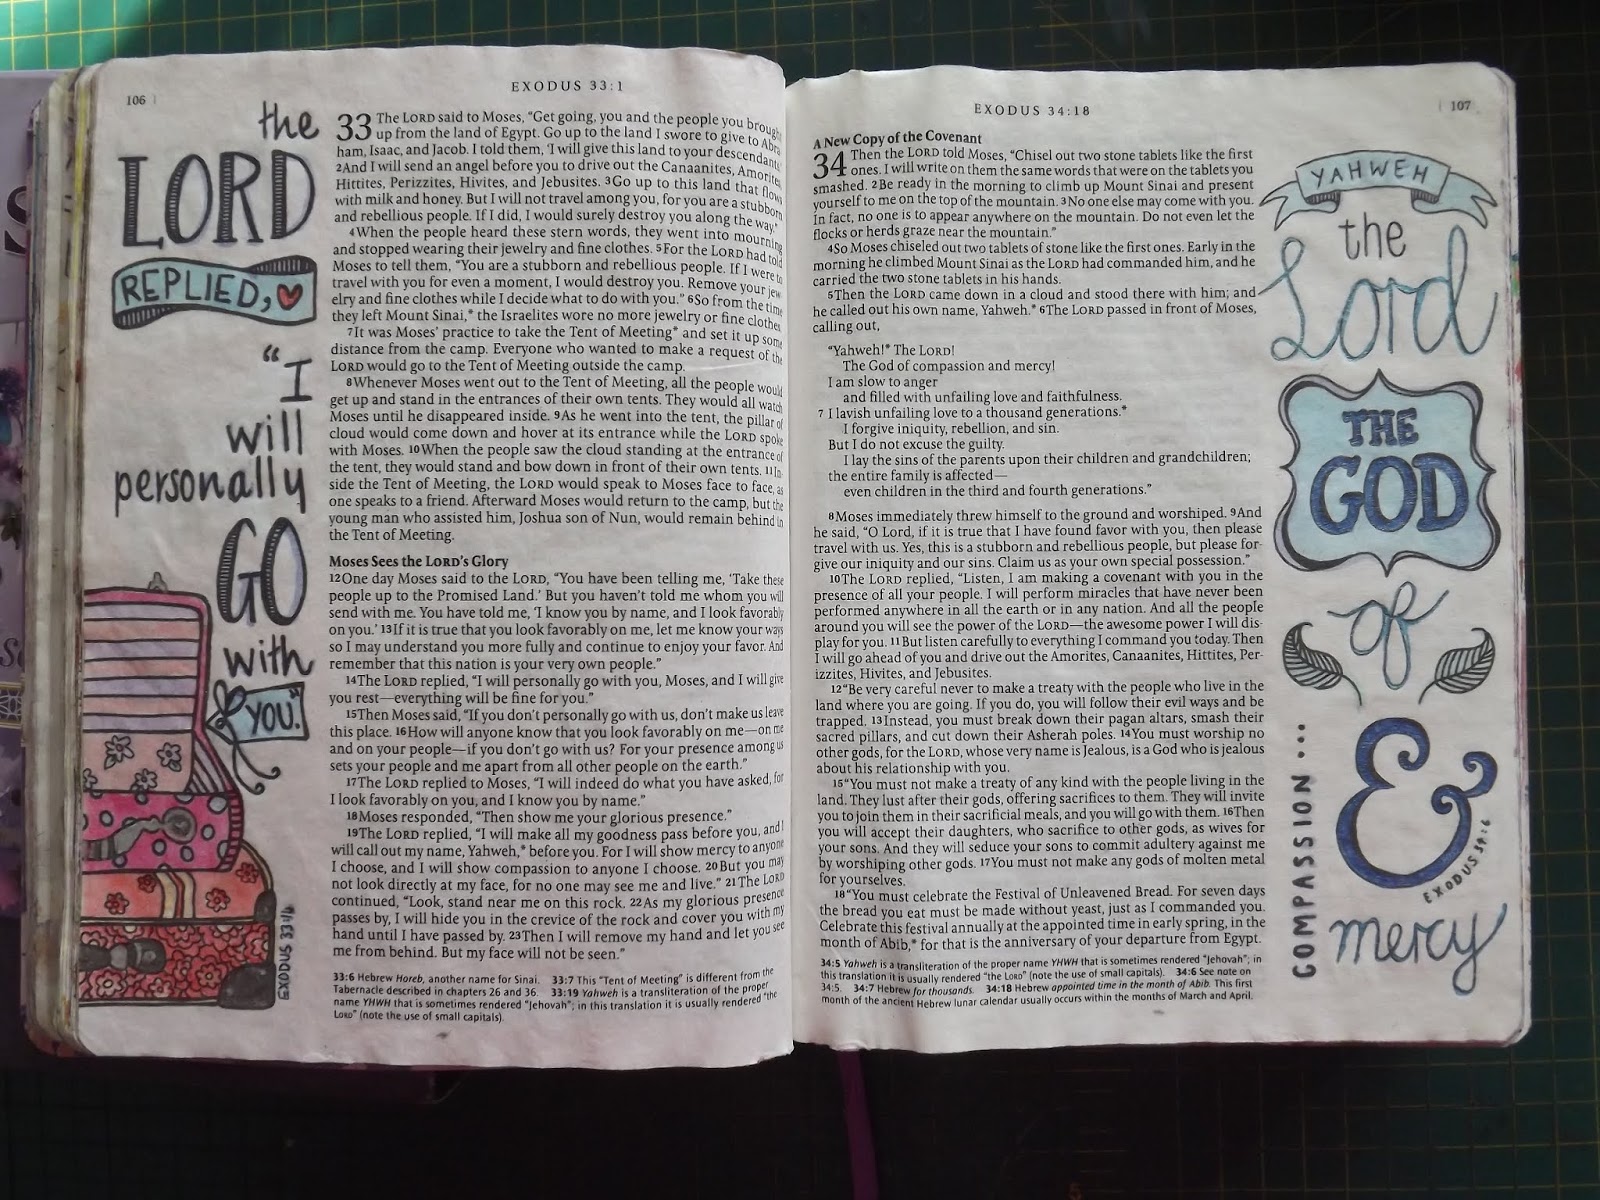 106
EXODUS 33:1
the
LORD
REPLIED,
"I
will
personally
GO
with
YOU."
EXODUS 33:14
33 The LORD said to Moses, "Get going, you and the people you brought
up from the land of Egypt. Go up to the land I swore to give to Abra
ham, Isaac, and Jacob. I told them, 'I will give this land to your descendants.'
2And I will send an angel before you to drive out the Canaanites, Amorites,
Hittites, Perizzites, Hivites, and Jebusites. 3Go up to this land that flows
with milk and honey. But I will not travel among you, for you are a stubborn
and rebellious people. If I did, I would surely destroy you along the way."
4When the people heard these stern words, they went into mourning
and stopped wearing their jewelry and fine clothes. 5For the LORD had told
Moses to tell them, "You are a stubborn and rebellious people. If I were to
travel with you for even a moment, I would destroy you. Remove your jew
elry and fine clothes while I decide what to do with you." 6So from the time
they left Mount Sinai,* the Israelites wore no more jewelry or fine clothes.
7It was Moses' practice to take the Tent of Meeting* and set it up some
distance from the camp. Everyone who wanted to make a request of the
LORD would go to the Tent of Meeting outside the camp.
8Whenever Moses went out to the Tent of Meeting, all the people would
get up and stand in the entrances of their own tents. They would all watch
Moses until he disappeared inside. 9As he went into the tent, the pillar of
cloud would come down and hover at its entrance while the LORD spoke
with Moses. 10When the people saw the cloud standing at the entrance of
the tent, they would stand and bow down in front of their own tents. 11In
side the Tent of Meeting, the LORD would speak to Moses face to face, as
one speaks to a friend. Afterward Moses would return to the camp, but the
young man who assisted him, Joshua son of Nun, would remain behind in
the Tent of Meeting.
Moses Sees the LORD's Glory
12One day Moses said to the LORD, "You have been telling me, 'Take these
people up to the Promised Land.' But you haven't told me whom you will
send with me. You have told me, 'I know you by name, and I look favorably
on you.' 13If it is true that you look favorably on me, let me know your ways
so I may understand you more fully and continue to enjoy your favor. And
remember that this nation is your very own people."
14The LORD replied, "I will personally go with you, Moses, and I will give
you rest—everything will be fine for you."
15Then Moses said, "If you don't personally go with us, don't make us leave
this place. 16How will anyone know that you look favorably on me—on me
and on your people—if you don't go with us? For your presence among us
sets your people and me apart from all other people on the earth."
17The LORD replied to Moses, "I will indeed do what you have asked, for
I look favorably on you, and I know you by name."
18Moses responded, "Then show me your glorious presence."
19The LORD replied, "I will make all my goodness pass before you, and I
will call out my name, Yahweh,* before you. For I will show mercy to anyone
I choose, and I will show compassion to anyone I choose. 20But you may
not look directly at my face, for no one may see me and live." 21The LORD
continued, "Look, stand near me on this rock. 22As my glorious presence
passes by, I will hide you in the crevice of the rock and cover you with my
hand until I have passed by. 23Then I will remove my hand and let you see
me from behind. But my face will not be seen."
33:6 Hebrew Horeb, another name for Sinai. 33:7 This "Tent of Meeting" is different from the
Tabernacle described in chapters 26 and 36. 33:19 Yahweh is a transliteration of the proper
name YHWH that is sometimes rendered "Jehovah"; in this translation it is usually rendered "the
LORD" (note the use of small capitals).
EXODUS 34:18
107
A New Copy of the Covenant
34 Then the LORD told Moses, "Chisel out two stone tablets like the first
ones. I will write on them the same words that were on the tablets you
smashed. 2Be ready in the morning to climb up Mount Sinai and present
yourself to me on the top of the mountain. 3No one else may come with you.
In fact, no one is to appear anywhere on the mountain. Do not even let the
flocks or herds graze near the mountain."
4So Moses chiseled out two tablets of stone like the first ones. Early in the
morning he climbed Mount Sinai as the LORD had commanded him, and he
carried the two stone tablets in his hands.
5Then the LORD came down in a cloud and stood there with him; and
he called out his own name, Yahweh.* 6The LORD passed in front of Moses,
calling out,
"Yahweh!* The LORD!
The God of compassion and mercy!
I am slow to anger
and filled with unfailing love and faithfulness.
7 I lavish unfailing love to a thousand generations.*
I forgive iniquity, rebellion, and sin.
But I do not excuse the guilty.
I lay the sins of the parents upon their children and grandchildren;
the entire family is affected—
even children in the third and fourth generations."
8Moses immediately threw himself to the ground and worshiped. 9And
he said, "O Lord, if it is true that I have found favor with you, then please
travel with us. Yes, this is a stubborn and rebellious people, but please for-
give our iniquity and our sins. Claim us as your own special possession."
10The LORD replied, "Listen, I am making a covenant with you in the
presence of all your people. I will perform miracles that have never been
performed anywhere in all the earth or in any nation. And all the people
around you will see the power of the LORD—the awesome power I will dis-
play for you. 11But listen carefully to everything I command you today. Then
I will go ahead of you and drive out the Amorites, Canaanites, Hittites, Per-
izzites, Hivites, and Jebusites.
12"Be very careful never to make a treaty with the people who live in the
land where you are going. If you do, you will follow their evil ways and be
trapped. 13Instead, you must break down their pagan altars, smash their
sacred pillars, and cut down their Asherah poles. 14You must worship no
other gods, for the LORD, whose very name is Jealous, is a God who is jealous
about his relationship with you.
15"You must not make a treaty of any kind with the people living in the
land. They lust after their gods, offering sacrifices to them. They will invite
you to join them in their sacrificial meals, and you will go with them. 16Then
you will accept their daughters, who sacrifice to other gods, as wives for
your sons. And they will seduce your sons to commit adultery against me
by worshiping other gods. 17You must not make any gods of molten metal
for yourselves.
18"You must celebrate the Festival of Unleavened Bread. For seven days
the bread you eat must be made without yeast, just as I commanded you.
Celebrate this festival annually at the appointed time in early spring, in the
month of Abib,* for that is the anniversary of your departure from Egypt.
34:5 Yahweh is a transliteration of the proper name YHWH that is sometimes rendered "Jehovah"; in
this translation it is usually rendered "the LORD" (note the use of small capitals). 34:6 See note on
34:5. 34:7 Hebrew for thousands. 34:18 Hebrew appointed time in the month of Abib. This first
month of the ancient Hebrew lunar calendar usually occurs within the months of March and April.
YAHWEH
the
Lord
THE
GOD
of
COMPASSION...
&
EXODUS 34:6
mercy